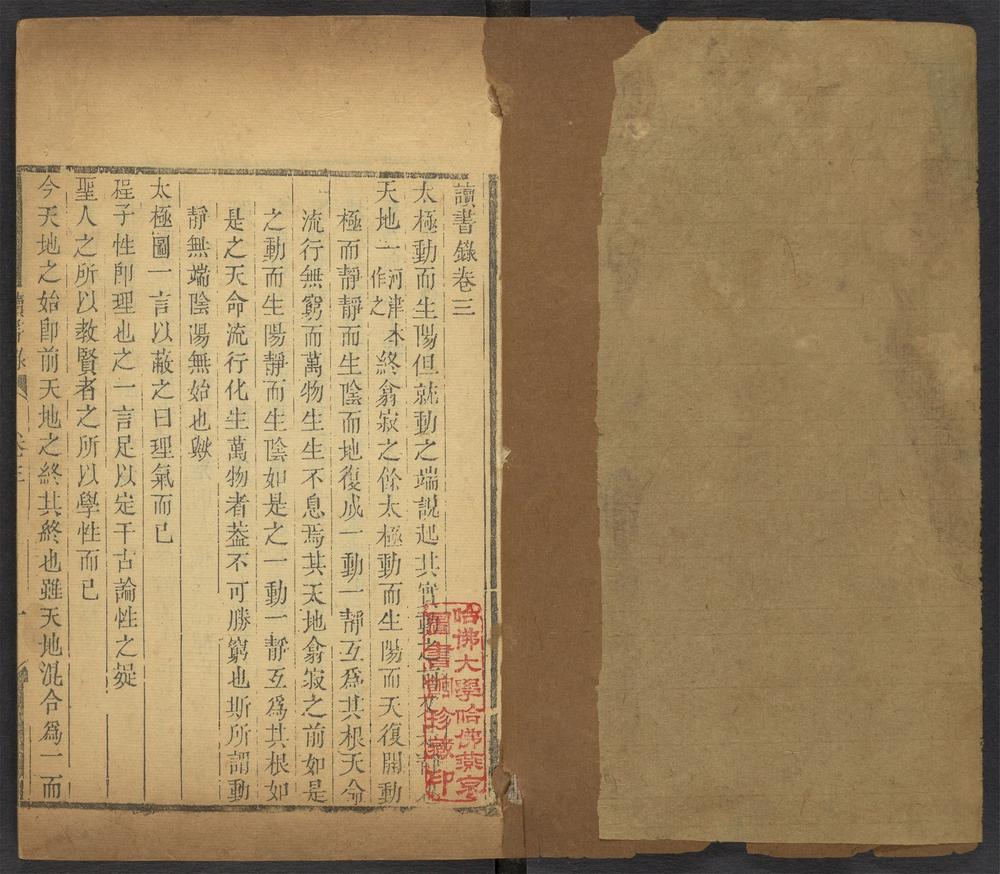 讀書錄卷三
太極動而生陽但就動之端說起其實動之前又
天地一河津本作之終翕寂之餘太極動而生陽而天復開動
極而靜靜而生陰而地復成一動一靜互為其根天命
流行無窮而萬物生生不息焉其天地翕寂之前如是
之動而生陽靜而生陰如是之一動一靜互為其根如
是之天命流行化生萬物者蓋不可勝窮也斯所謂動
靜無端陰陽無始也歟
太極圖一言以蔽之曰理氣而已
程子性即理也之一言足以定千古論性之疑
聖人之所以教賢者之所以學性而已
今天地之始即前天地之終其終也雖天地混合為一而
讀書錄
卷三
一
哈佛大學哈佛燕京
圖書館珍藏印